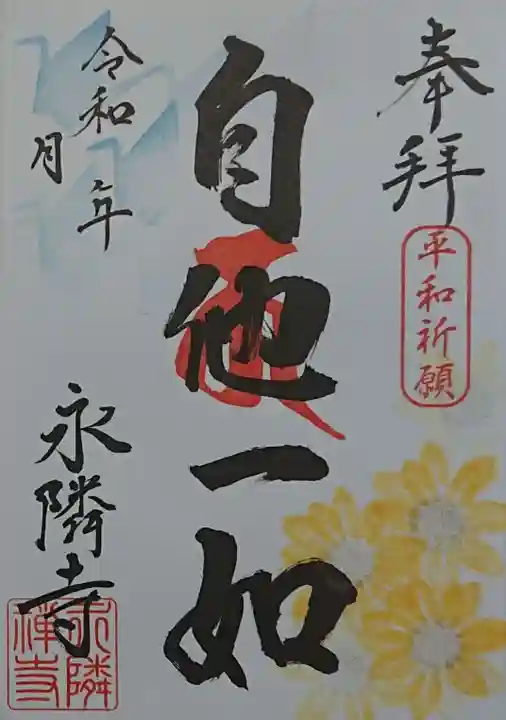 奉拝
平和祈願
自他一如
令和 年
月
永隣寺
永隣
禅寺